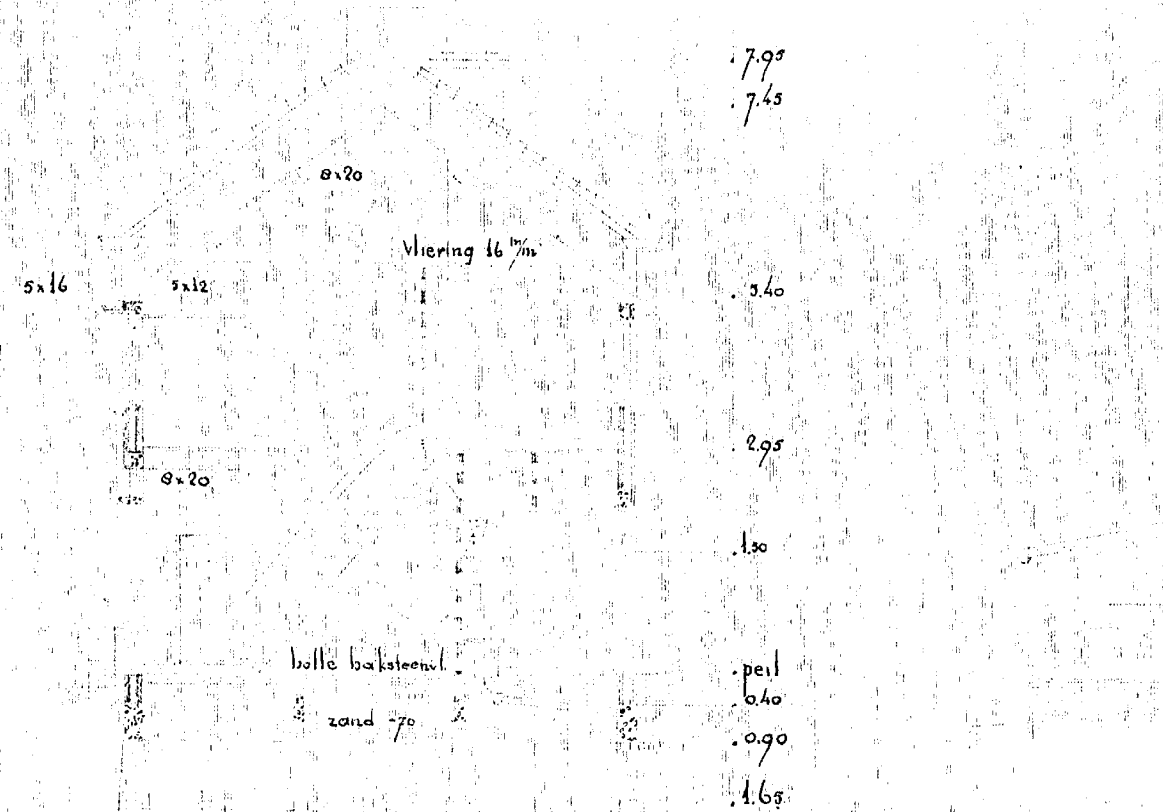 7.95
7.45
8x20
Vliering 16 m/m
5x16
5x12
5.40
2.95
8x20
1.50
holle baksteenvl.
peil
0.40
zand -70
0.90
1.65